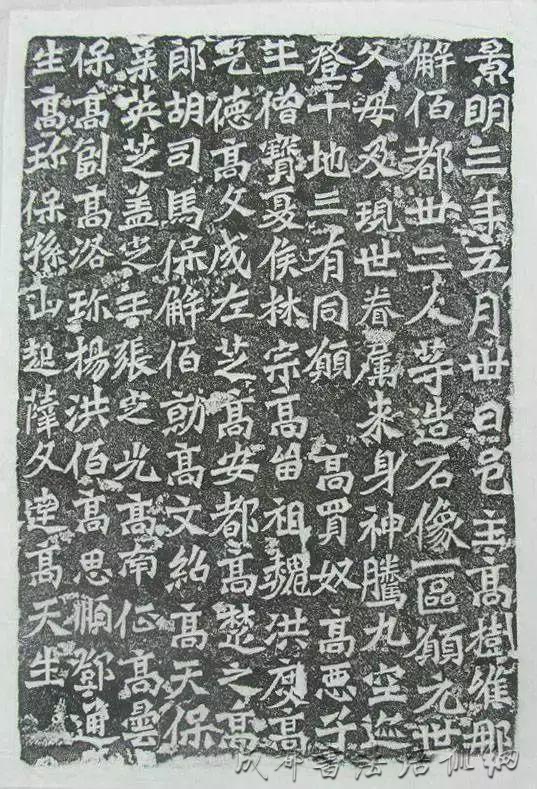 景明三年五月卅日邑主高樹維那
解佰都卅二人等造石像一區願元世
父母及現世眷屬來身神騰九空迹
登十地三有同願 高買奴高惡子
王僧寶夏侯林宗高留祖魏洪度高
乞德高文成左芝高安都高楚之高
郎胡司馬保解佰勍高文紹高天保
英芝盖定王張定光高南征高曇
保高副高洛珎楊洪佰高思順鄧通
生高珎保孫山起薛文達高天生
成都書法培訓網